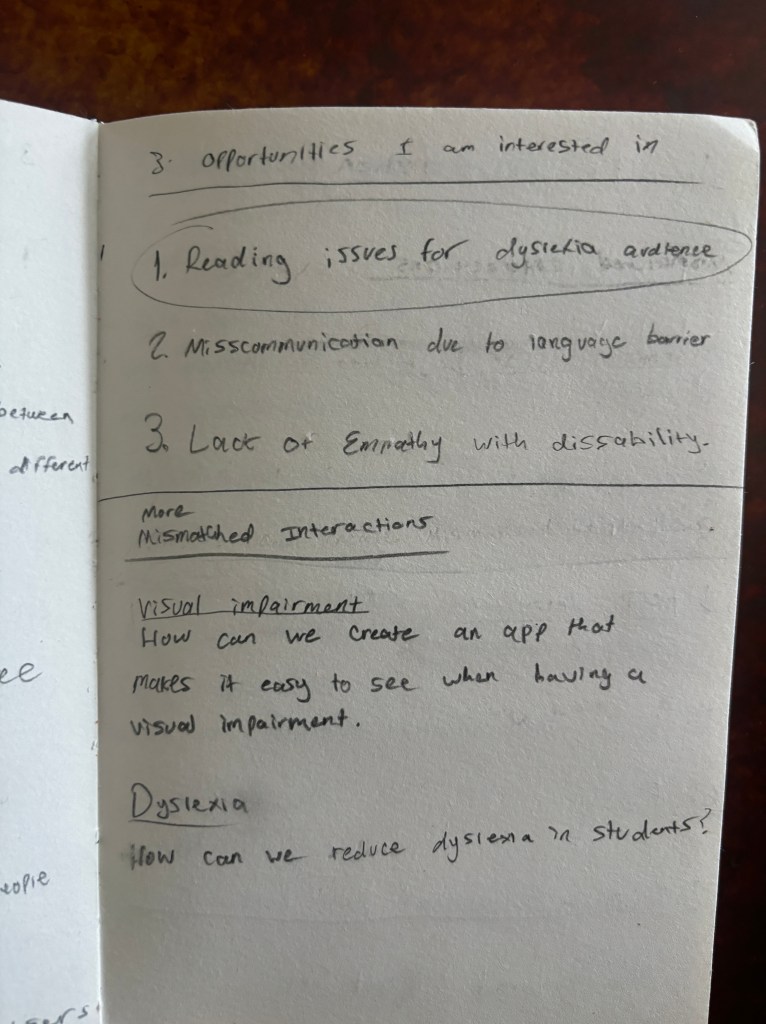 3. opportunities I am interested in
1. Reading issues for dyslexia audience
2. Misscommunication due to language barrier
3. Lack of Empathy with dissability.
More
Mismatched Interactions
Visual impairment
How can we create an app that
makes it easy to see when having a
visual impairment.
Dyslexia
How can we reduce dyslexia in students?
between
different